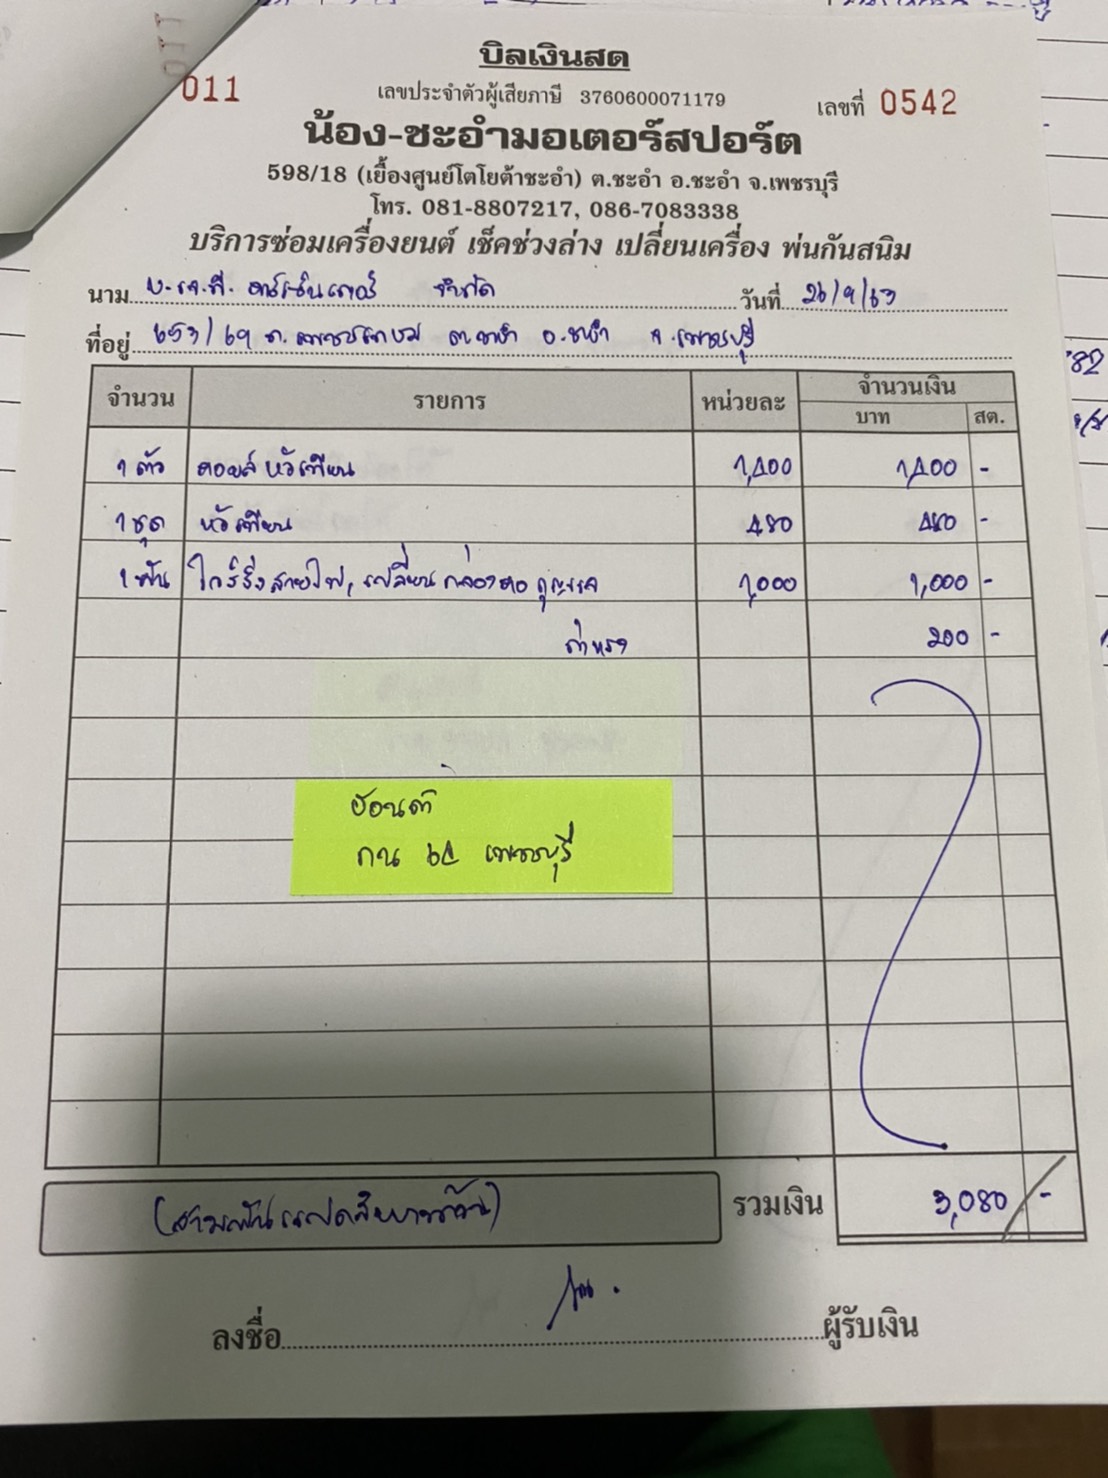 บิลเงินสด
011
เลขประจำตัวผู้เสียภาษี 3760600071179
เลขที่ 0542
น้อง-ชะอำมอเตอร์สปอร์ต
598/18 (เยื้องศูนย์โตโยต้าชะอำ) ต.ชะอำ อ.ชะอำ จ.เพชรบุรี
โทร. 081-8807217, 086-7083338
บริการซ่อมเครื่องยนต์ เช็คช่วงล่าง เปลี่ยนเครื่อง พ่นกันสนิม
นาม บ. เจ.ที. จำกัด วันที่ 26/9/63
ที่อยู่ 653/69 ถ.เพชรเกษม ต.ชะอำ อ.ชะอำ จ.เพชรบุรี
จำนวน รายการ หน่วยละ จำนวนเงิน
บาท สต.
1 ตัว คอยล์หัวเทียน 1,400 1,400 -
1 ชุด หัวเทียน 480 480 -
สายไฟ, เปลี่ยนกล่อง 1,000 1,000 -
ค่าแรง 200 -
ฮอนด้า
กน 64 เพชรบุรี
(สามพันแปดสิบบาทถ้วน) รวมเงิน 3,080 -
ลงชื่อ ผู้รับเงิน